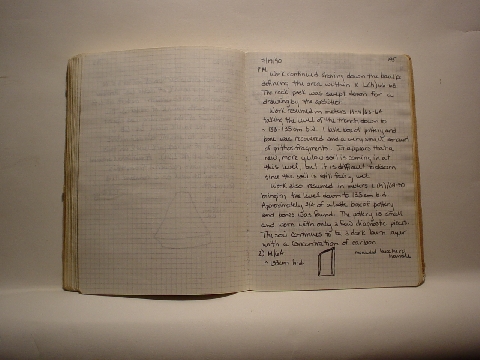 7/17/90
PM.
Work continued cleaning down the baulks
defining the area within
The rock pack was swept down for a
drawing by the architect.
Work resumed in meters
taking the level of the trench down to
~ 133-135cm b.d. 1 lake box of pottery and
bone was recovered and a very small amount
of pithos fragments. It appears that a
new, more yellow soil is coming in at
this level, but it is difficult to discern
since this soil is still fairly wet.
Work also resumed in meters
bringing the level down to 133cm b.d.
Approximately 3/4 of a lake box of pottery
and bones was found. The pottery is small
and worn with only a few diagnostic pieces.
The soil continues to be a dark burn layer
with a concentration of carbon
2)
~ 133cm b.d.
handle